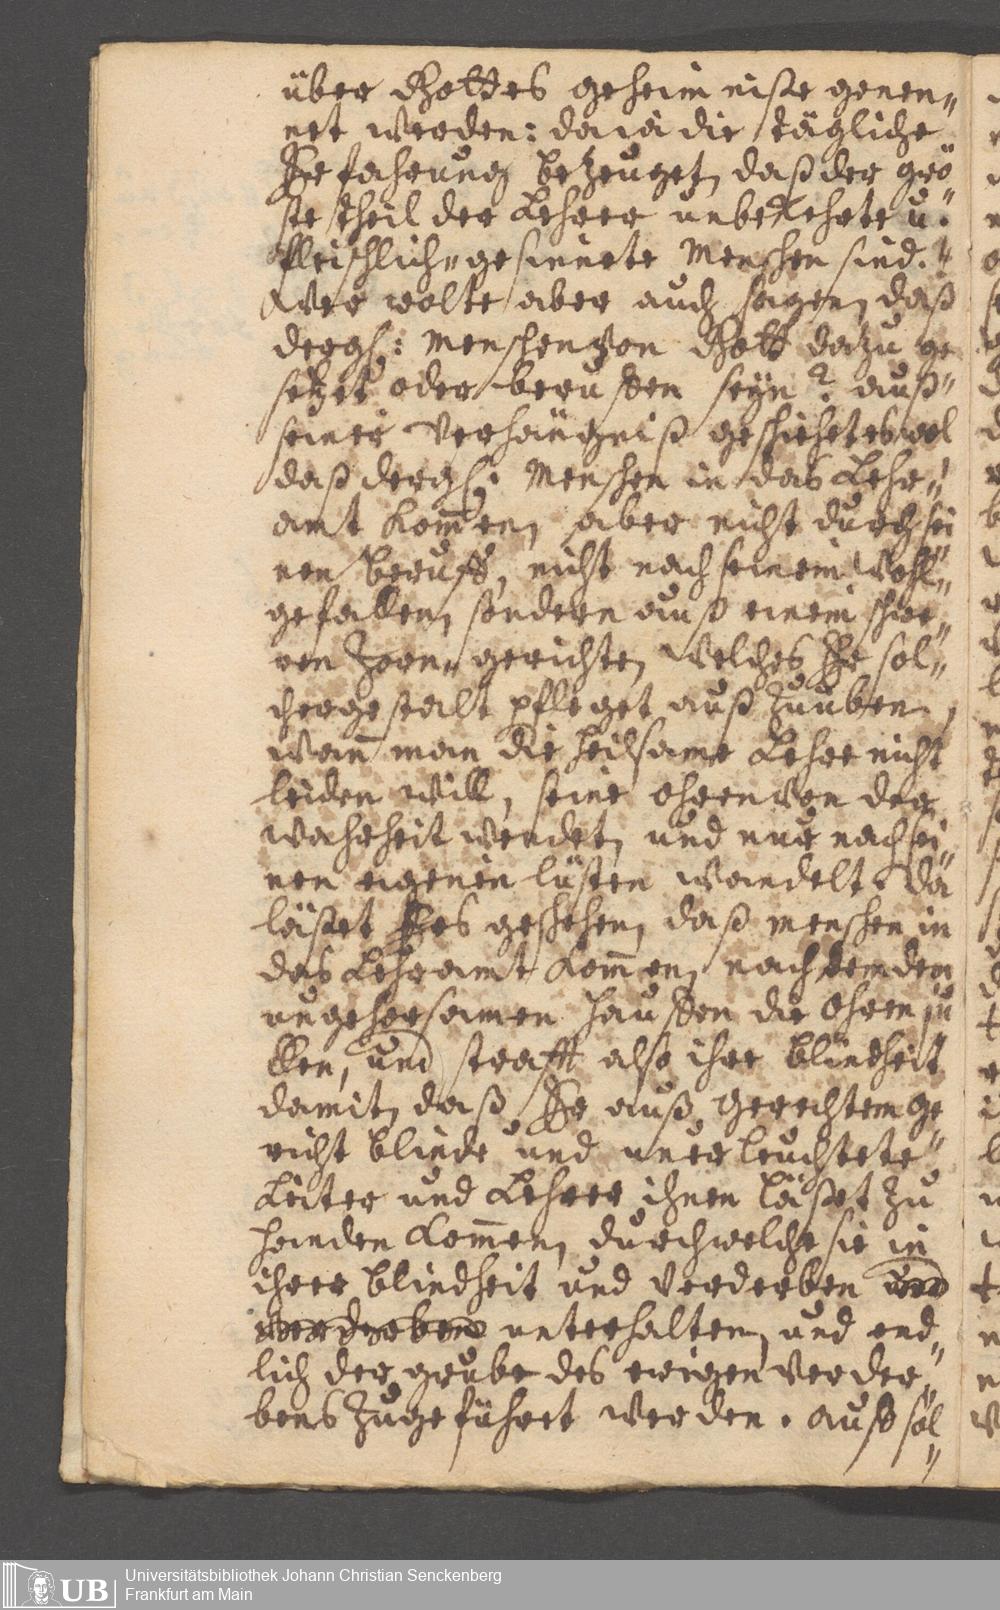 über Gottes geheimniße genen„
net werden: da ia die tägliche
Erfahrung bezeuget, daß der grö„
ste theil der Lehrer unbekehrte u.
fleischlich-gesinnete Menschen sind.
Wer wolte aber auch sagen, daß
dergl: Menschen von Gott dazu ge
setzet oder beruffen seyn? auß
seiner Verhängniß geschiehet es wol
daß dergl: Menschen in das Lehr„
amt kom̅en, aber nicht durch sei
nen Beruff, nicht nach seinem Wohl„
gefallen, sondern auß einem schwe„
ren Zorn-gerichte, welches Er sol„
chergestalt pfleget auß zu uben,
wan̅ man die heilsame Lehre nicht
leiden will, seine ohren von der
wahrheit wendet, und nur nach sei„
nen eigenen lüsten wandelt. Da
läßet Er es geschehen, daß menschen in
das Lehramt kom̅en, nach dem den
ungehorsamen hauffen die Ohren ju
cken, und strafft also ihre blindheit
damit, daß Er auß gerechtem ge
richt blinde und unerleuchtete
Leiter und Lehrer ihnen läßet zu
handen kom̅en, durch welche sie in
ihrer blindheit und verderben und
verderben unterhalten, und end„
lich der grube des ewigen verder„
bens zugeführet werden. Auß sol„
Universitätsbibliothek Johann Christian Senckenberg
UB Frankfurt am Main